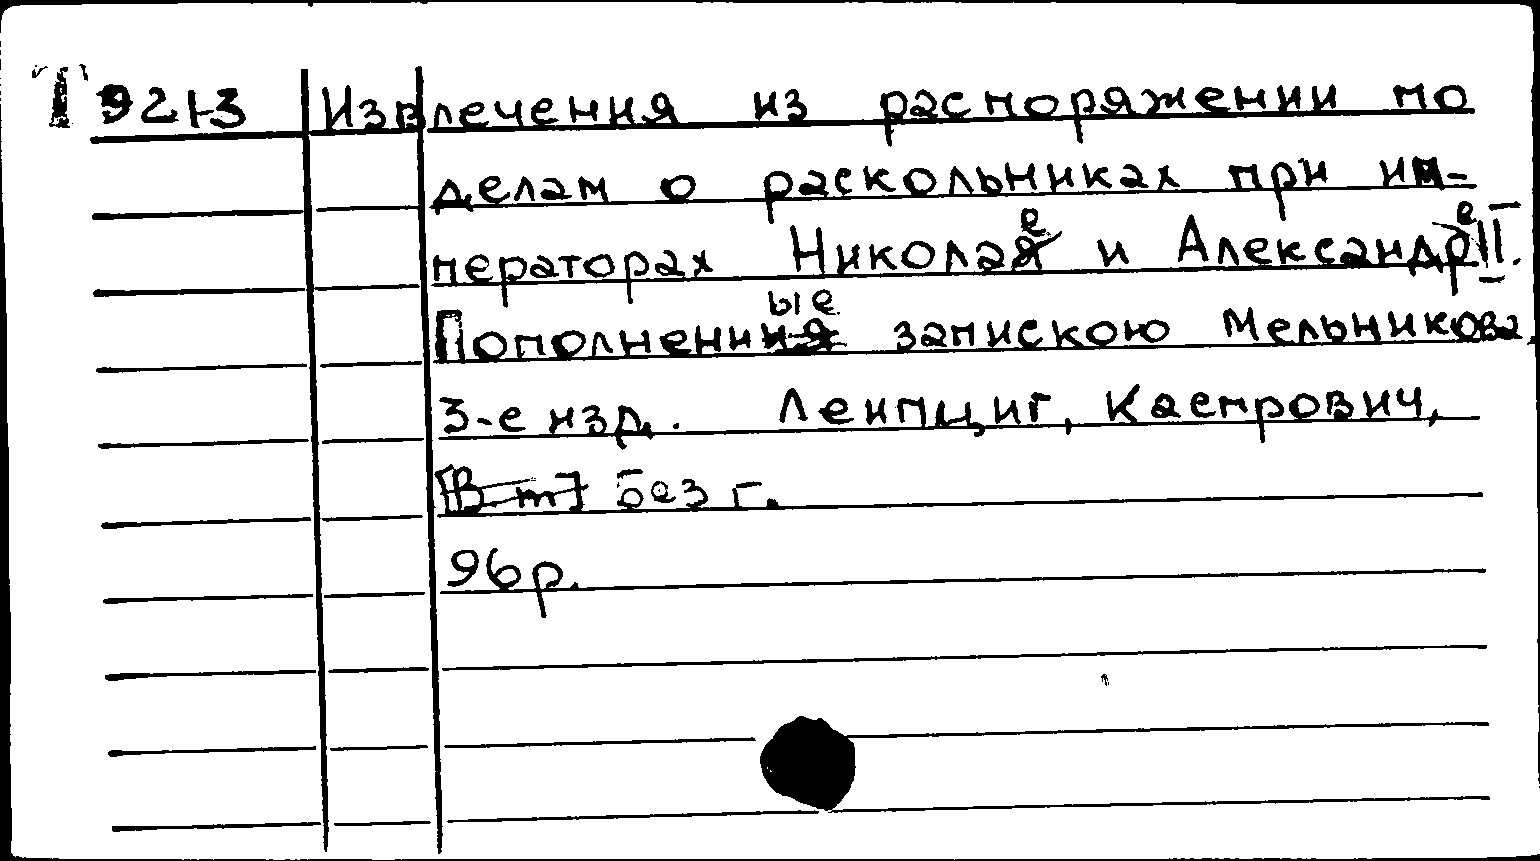 T 9213 Извлечения из распоряжении по
делам о раскольниках при им-
ператорах Николае и Александре II.
Пополненные запискою Мельникова.
3-е изд. Лейпциг, Каспрович,
[В-т] без г.
96 p.